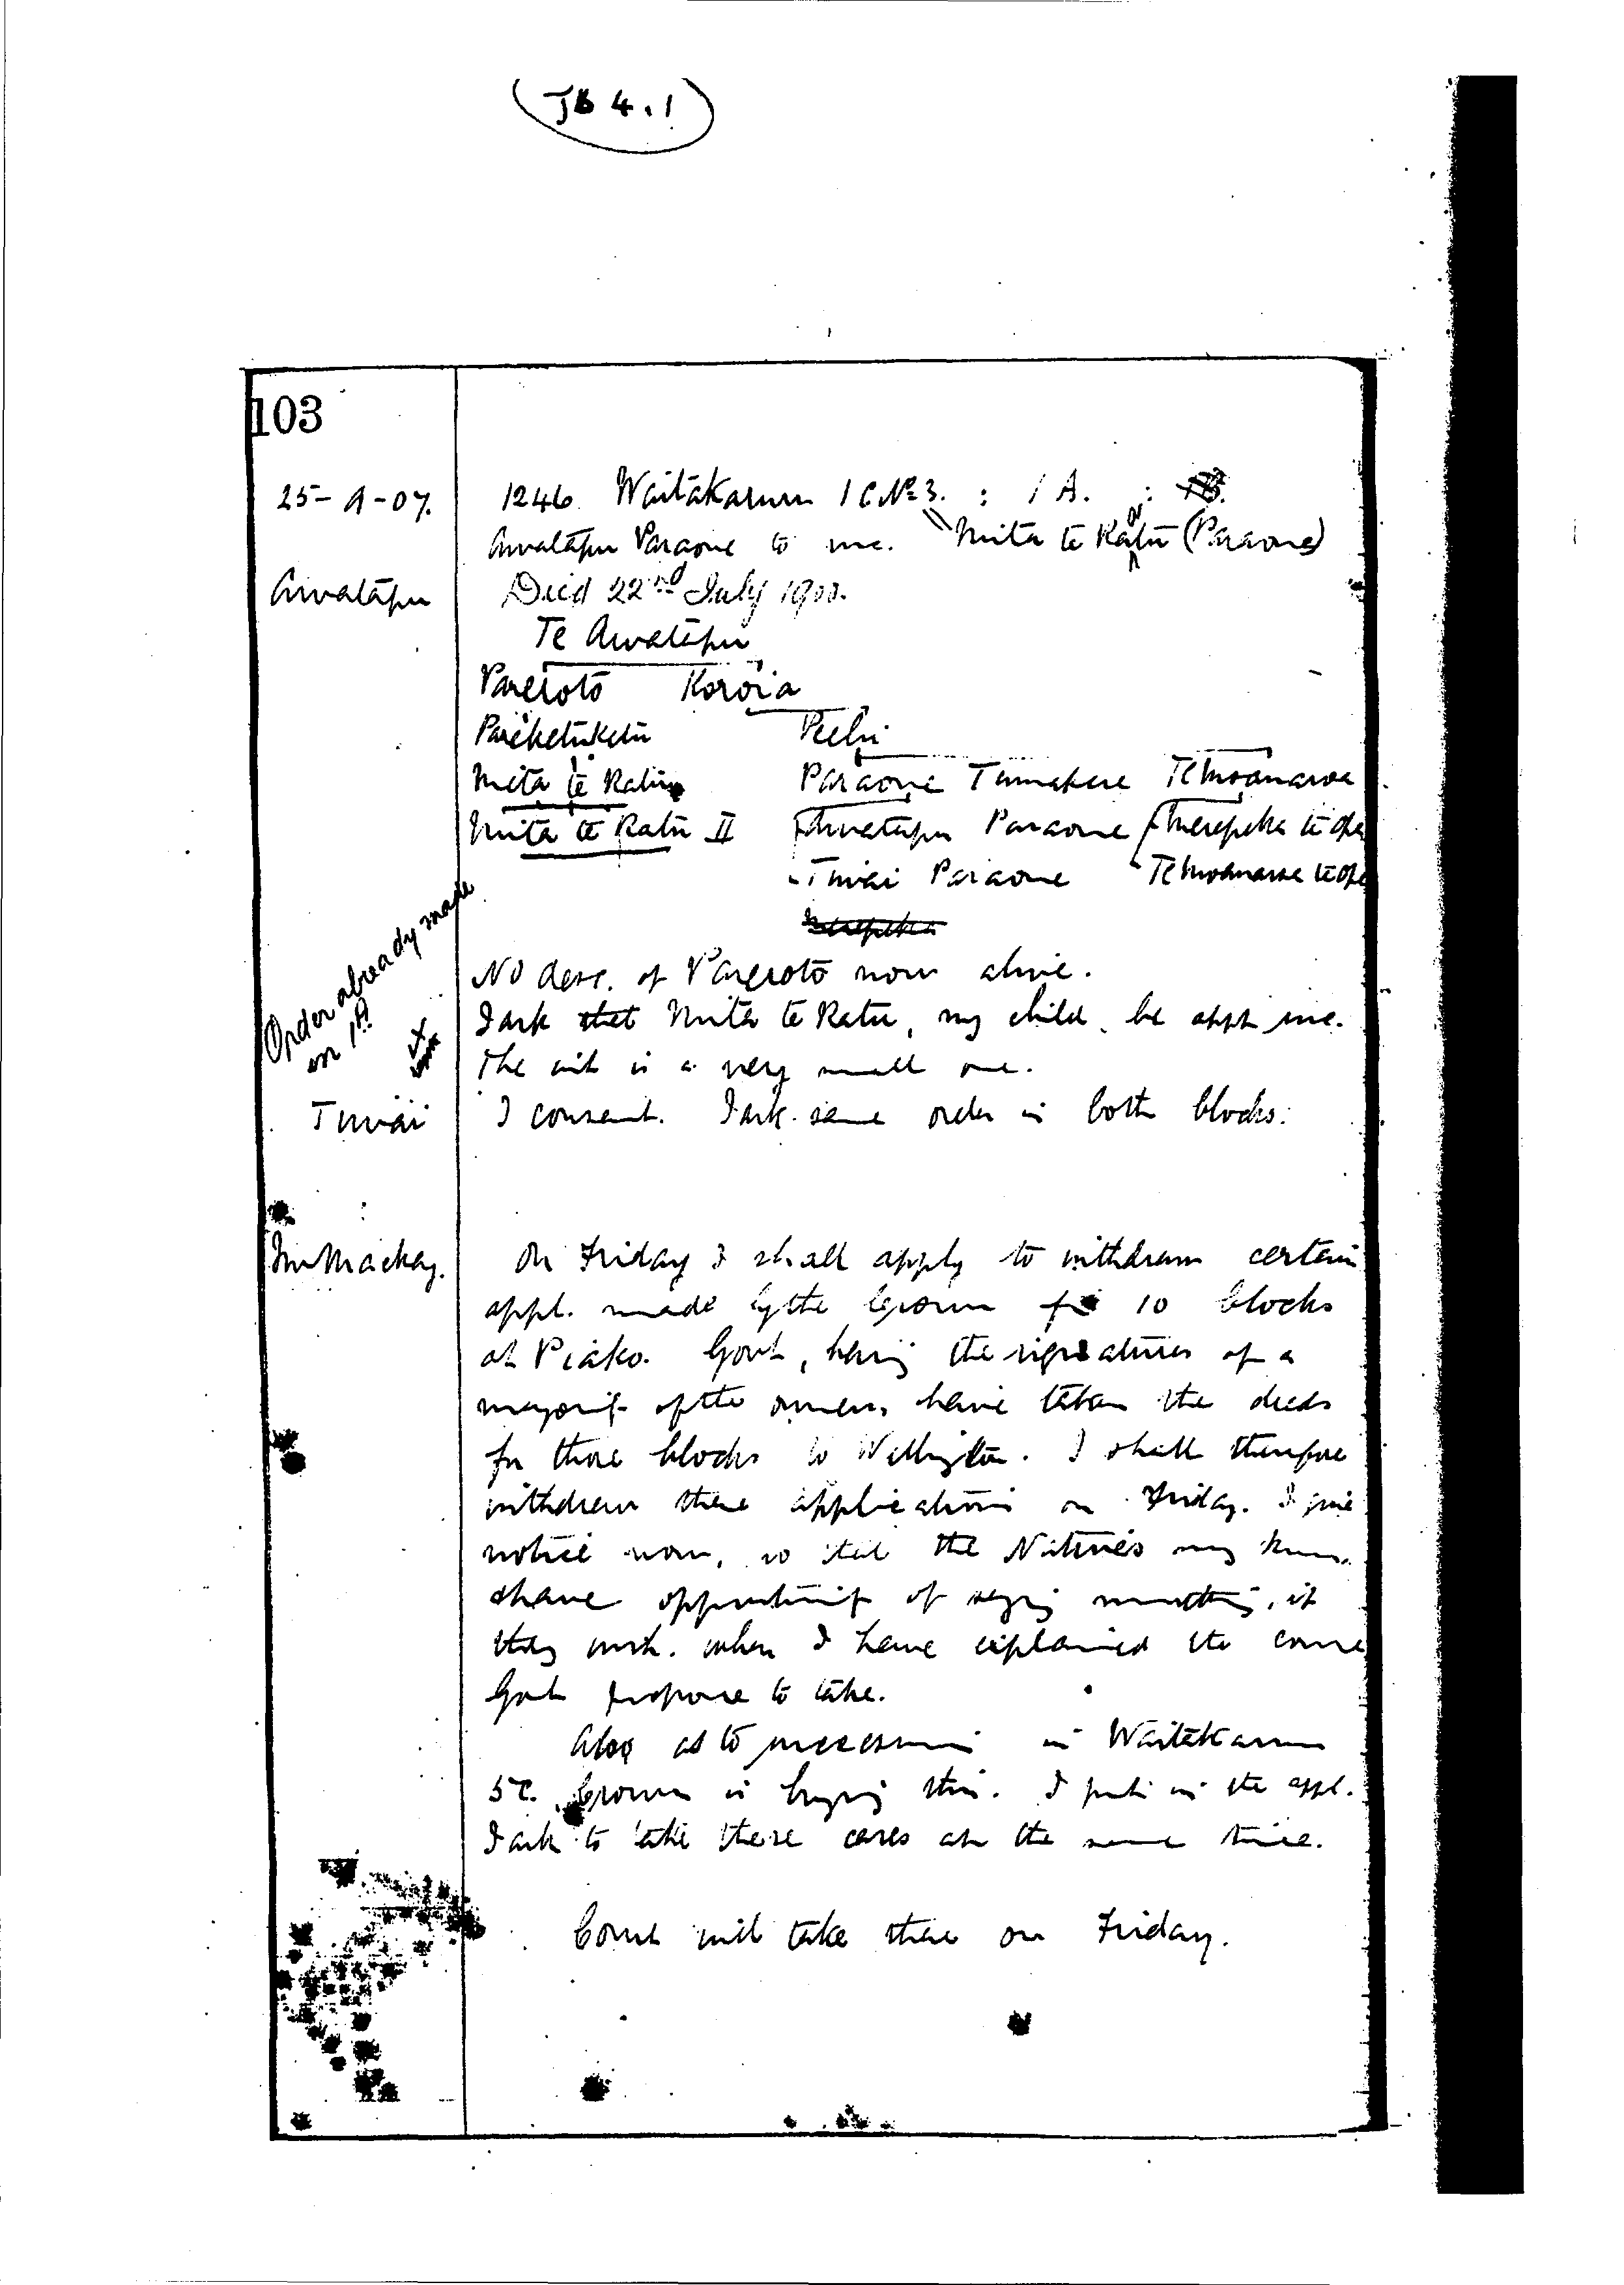 JB 4.1
103
25-9-07. 1246. Waitakaruru 1C No 3. : 1A. :
Awatapu Paraone to suc. Mita te Ratu (Paraone)
Awatapu Died 22nd July 1900.
Te Awatapu
Pareroto Koroia
Pareketuketu Peehi
Mita te Ratu Paraone Tumakere Te Moanaroa
Mita te Ratu II Awatapu Paraone Merepeka te Ope
Tiwai Paraone Te Moanaroa te Ope
Merepeka
No desc. of Pareroto now alive.
Order already made on 1A
I ask that Mita te Ratu, my child, be appt suc.
The int is a very small one.
Tiwai I consent. I ask same order in both blocks.
Mr Mackay. On Friday I shall apply to withdraw certain
appl. made by the Crown for 10 blocks
at Piako. Govt, having the signatures of a
majority of the owners have taken the deeds
for those blocks to Wellington. I shall therefore
withdraw these applications on Friday. I give
notice now, so that the Natives may know
& have opportunity of saying something, if
they wish, when I have explained the course
Govt propose to take.
Also as to successions in Waitakaruru
5C. Crown is buying this. I put in the appl.
I ask to take these cases at the same time.
Court will take these on Friday.